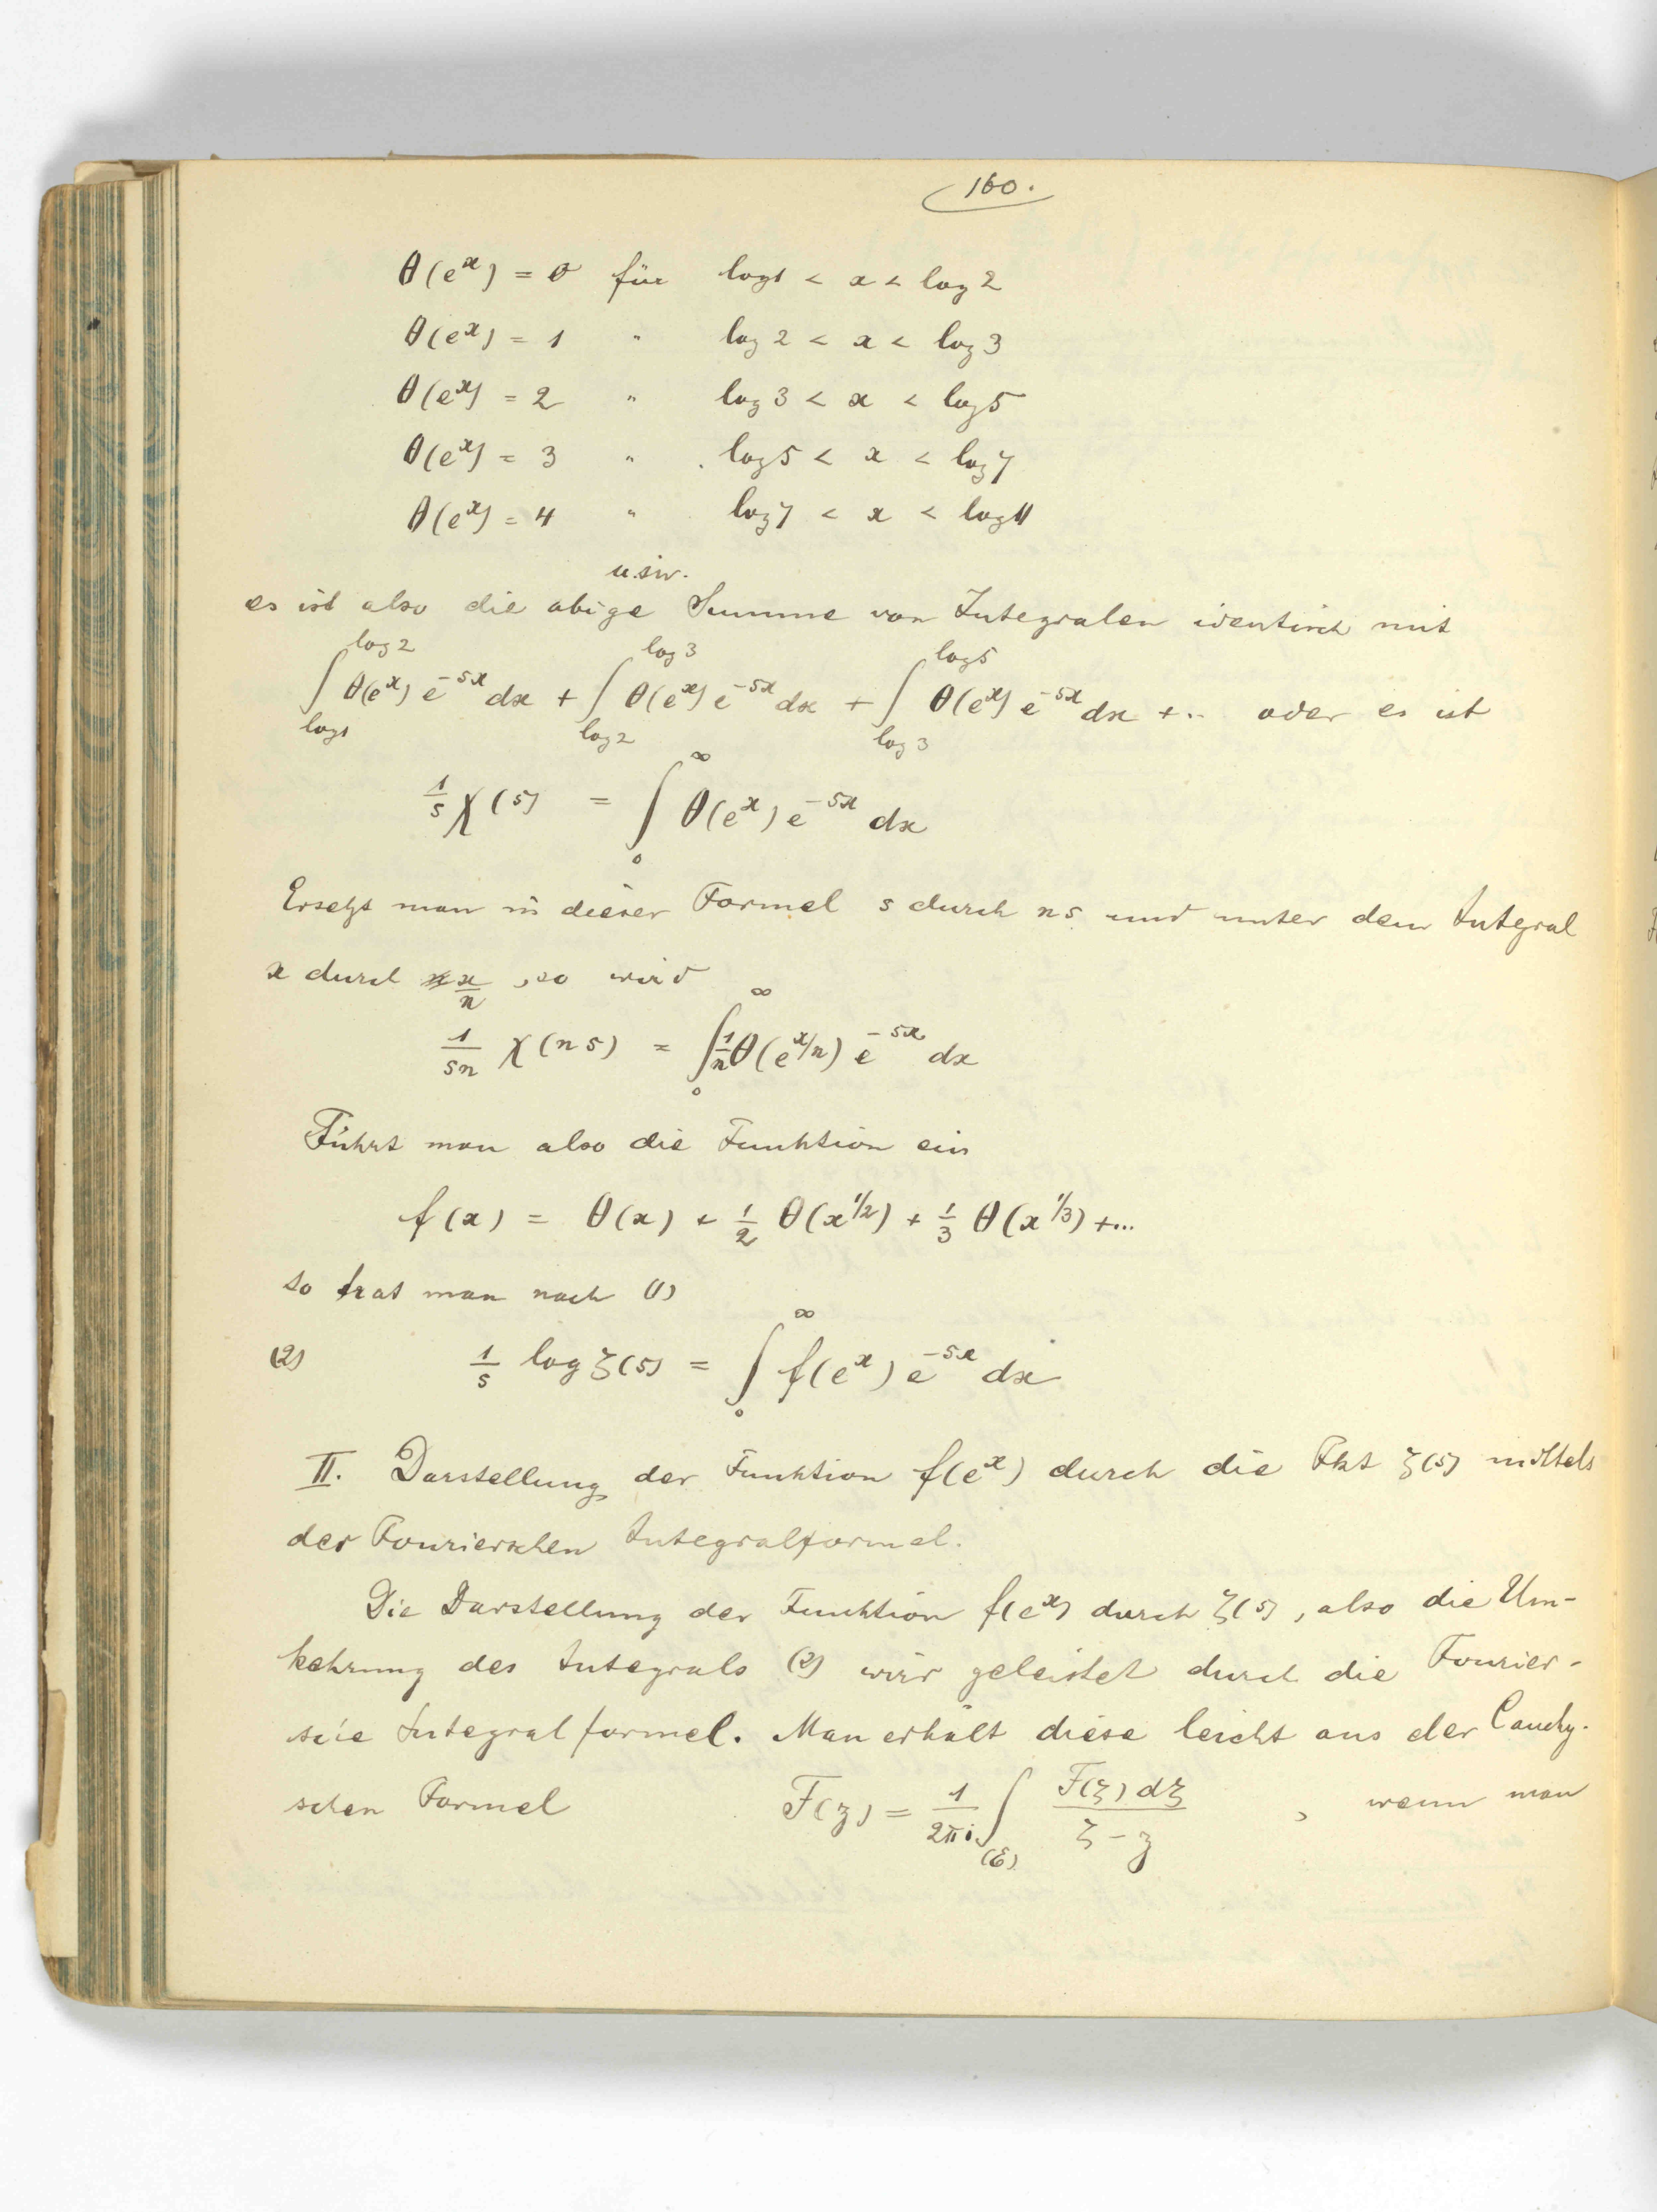 160.
θ(e^x) = 0 für log1 < x < log 2
θ(e^x) = 1 " log 2 < x < log 3
θ(e^x) = 2 " log 3 < x < log 5
θ(e^x) = 3 " log 5 < x < log 7
θ(e^x) = 4 " log 7 < x < log 11
u.s.w.
es ist also die obige Summe von Integralen identisch mit
∫_{log1}^{log 2} θ(e^x) e^{-sx} dx + ∫_{log 2}^{log 3} θ(e^x) e^{-sx} dx + ∫_{log 3}^{log 5} θ(e^x) e^{-sx} dx + .. oder es ist
1/s χ(s) = ∫_0^∞ θ(e^x) e^{-sx} dx
Ersetzt man in dieser Formel s durch ns und unter dem Integral
x durch x/n, so wird
1/sn χ(ns) = ∫_0^∞ 1/n θ(e^{x/n}) e^{-sx} dx
Führt man also die Funktion ein
f(x) = θ(x) + 1/2 θ(x^{1/2}) + 1/3 θ(x^{1/3}) + ...
so hat man nach (1)
(2) 1/s log ζ(s) = ∫_0^∞ f(e^x) e^{-sx} dx
II. Darstellung der Funktion f(e^x) durch die Fkt ζ(s) mittels
der Fourierschen Integralformel.
Die Darstellung der Funktion f(e^x) durch ζ(s), also die Um-
kehrung des Integrals (2) wird geleistet durch die Fourier-
sche Integralformel. Man erhält diese leicht aus der Cauchy-
schen Formel F(z) = 1/2πi ∫_{(C)} F(ζ) dζ / ζ - z , wenn man